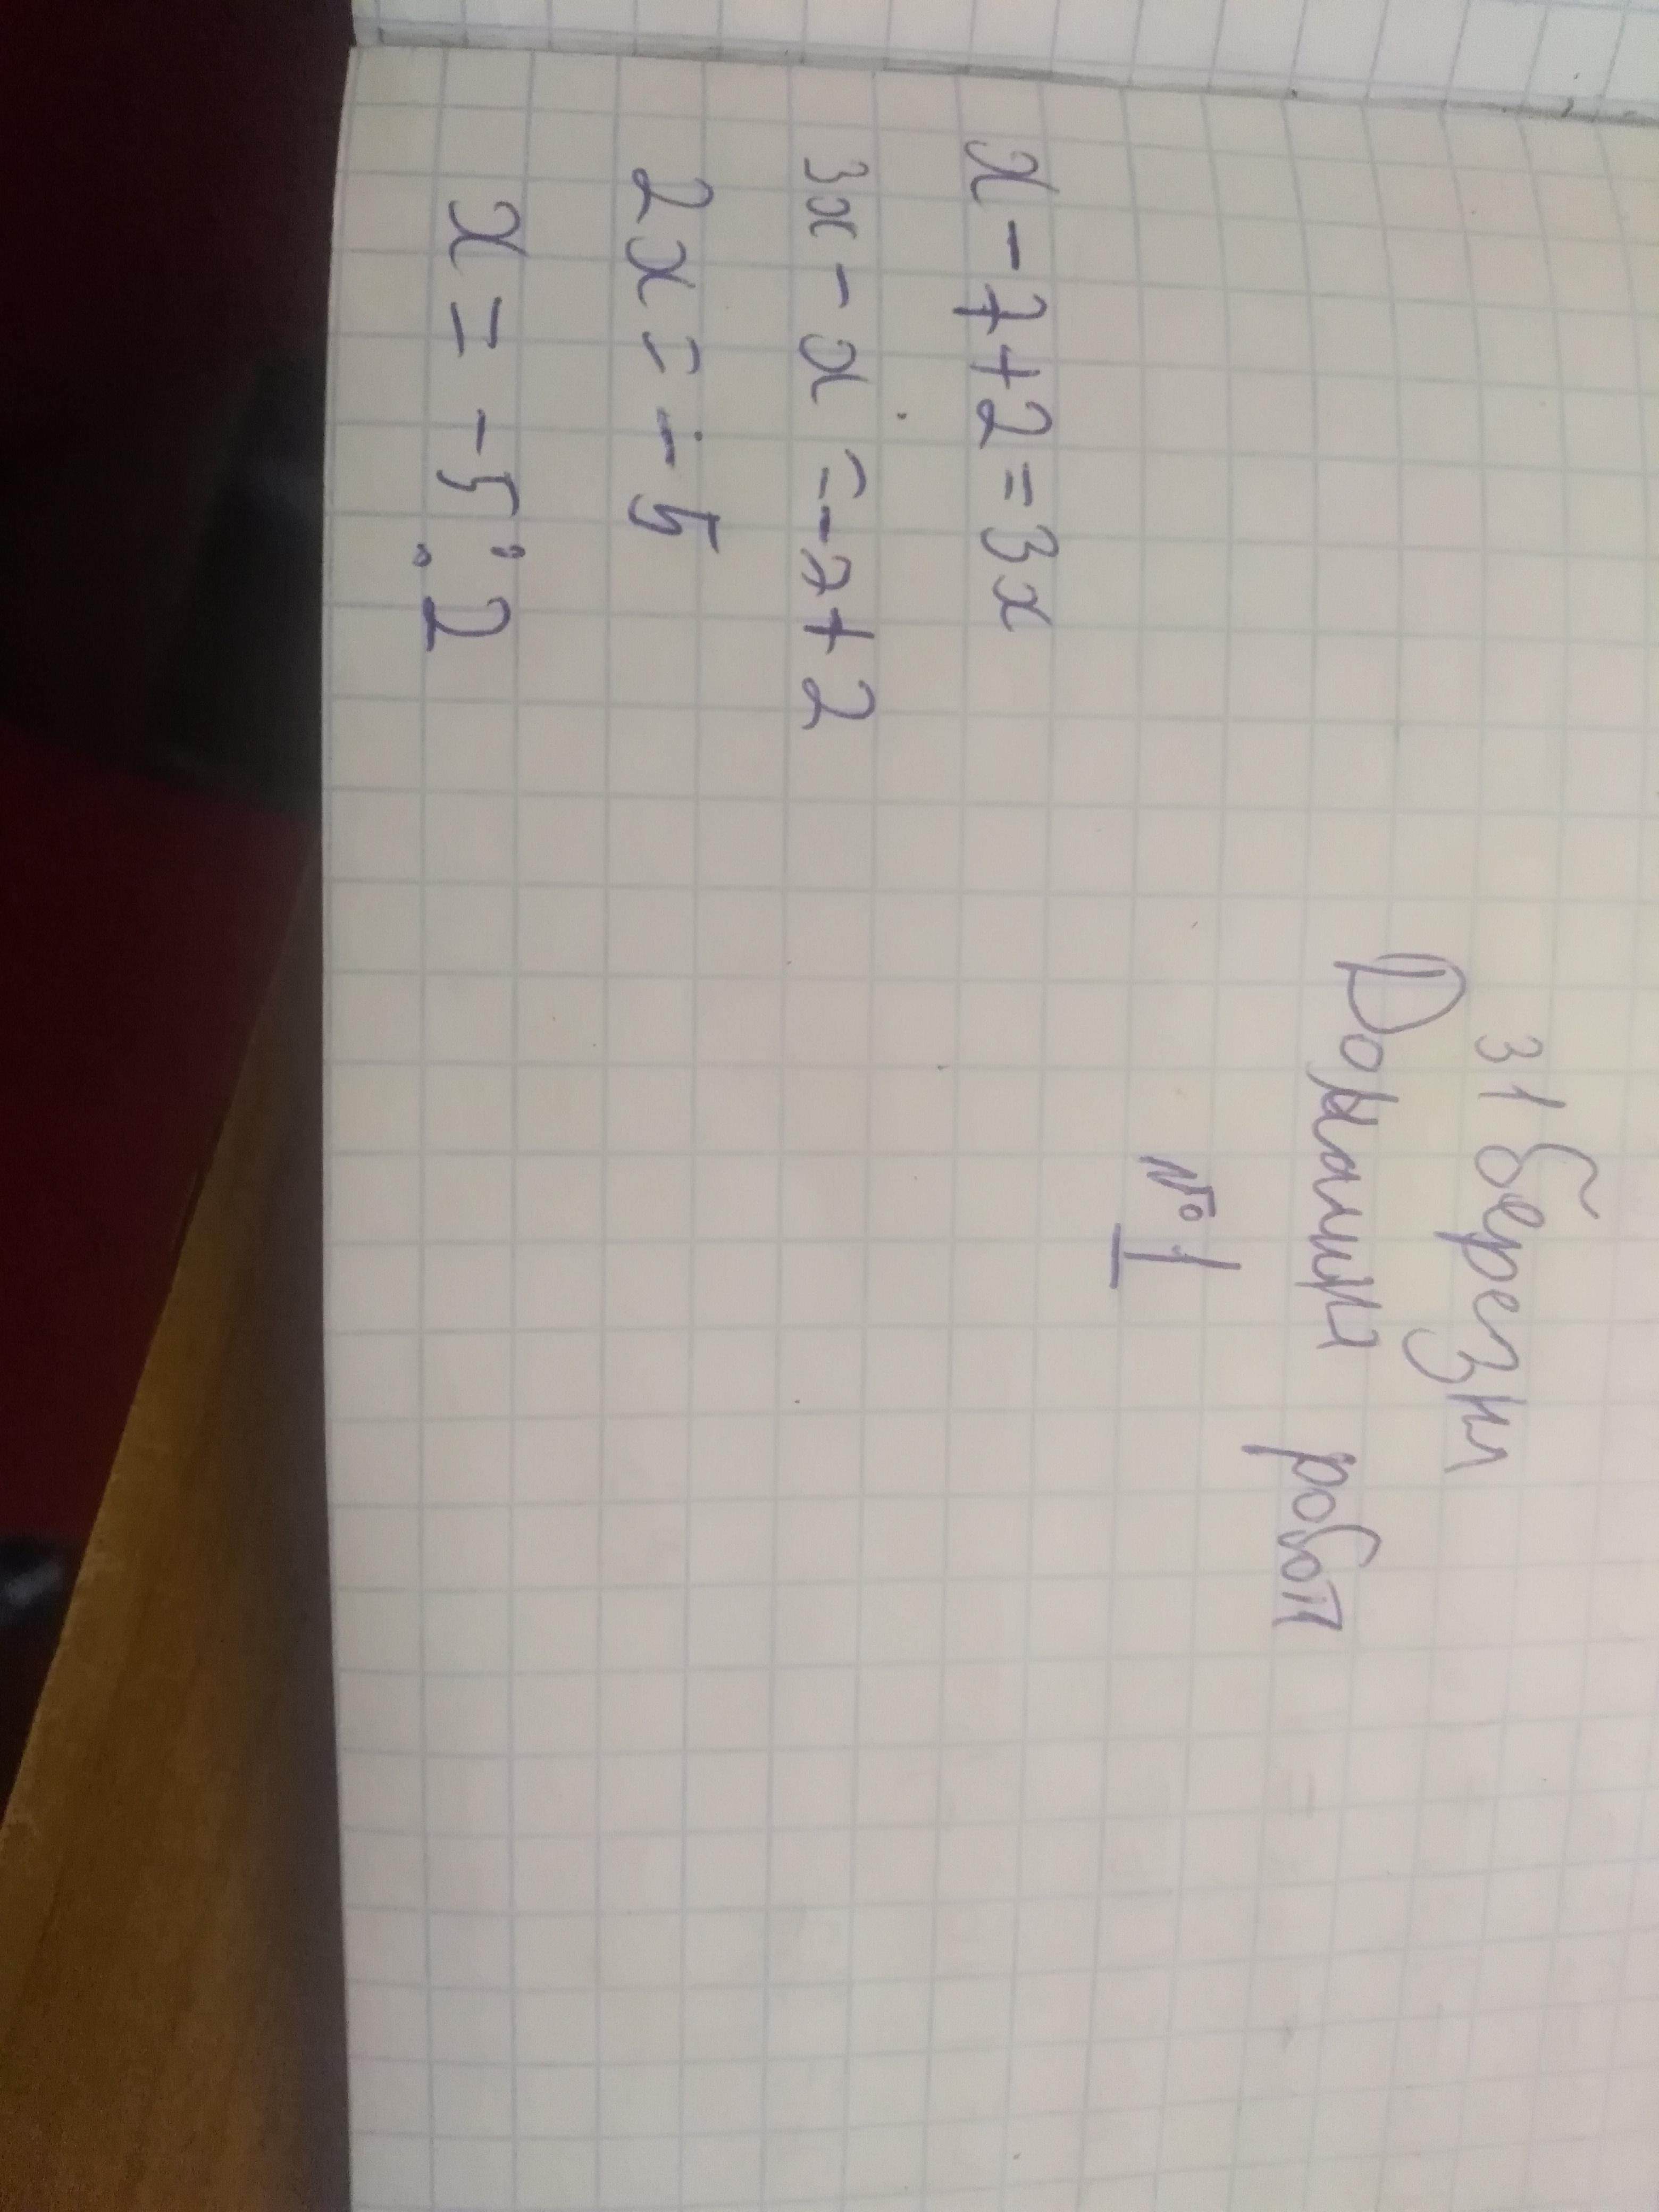 31 березня
Домашня робот
№1
x - 7 + 2 = 3x
3x - x = -7 + 2
2x = - 5
x = - 5 : 2